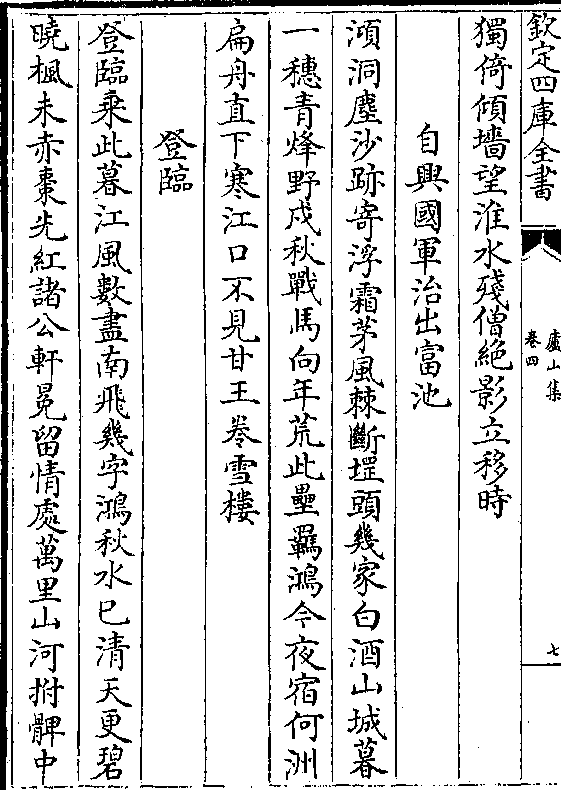 欽定四庫全書
廬山集
卷四
七
獨倚傾墻望淮水殘僧絶影立移時
自興國軍治出富池
澒洞塵沙跡寄浮霜茅風棘斷堽頭幾家白酒山城暮
一穗青烽野戍秋戰馬向年荒此壘羈鴻今夜宿何洲
扁舟直下寒江口不見甘王卷雪樓
登臨
登臨乘此暮江風數盡南飛幾字鴻秋水已清天更碧
曉楓未赤棗先紅諸公軒冕留情處萬里山河拊髀中